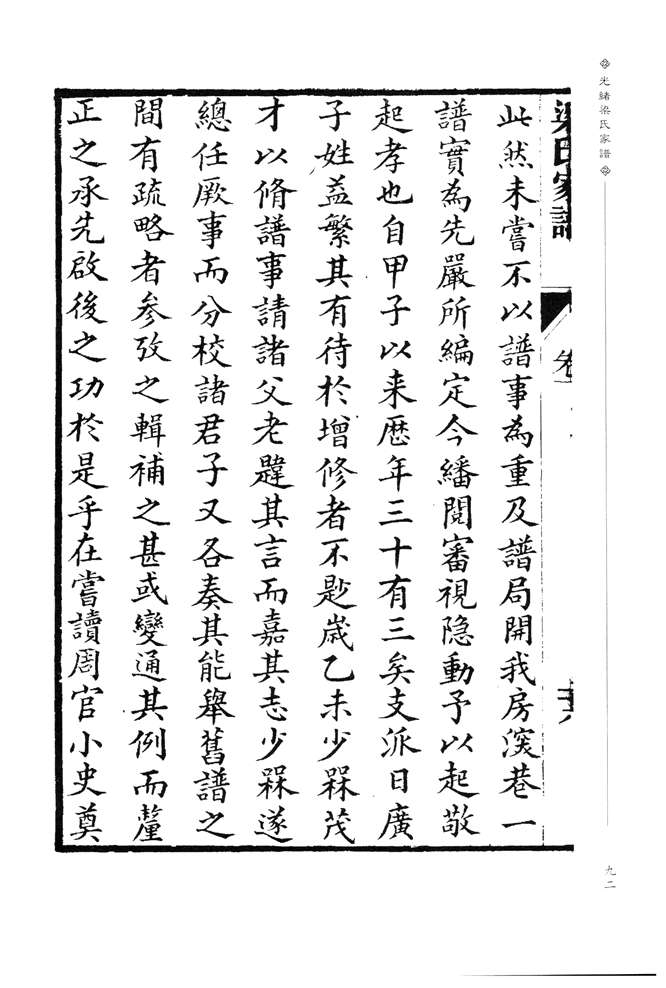 光緒梁氏家譜
梁氏家譜
卷一
此然未嘗不以譜事為重及譜局開我房深巷一
譜實為先嚴所編定今繙閱審視隐動予以起敬
起孝也自甲子以来歴年三十有三矣支派日廣
子姓益繁其有待於增修者不尟歲乙未少槑茂
才以脩譜事請諸父老韙其言而嘉其志少槑遂
總任厥事而分校諸君子又各奏其能舉舊譜之
間有疏略者参攷之輯補之甚或變通其例而釐
正之承先啟後之功於是乎在嘗讀周官小史奠
九二